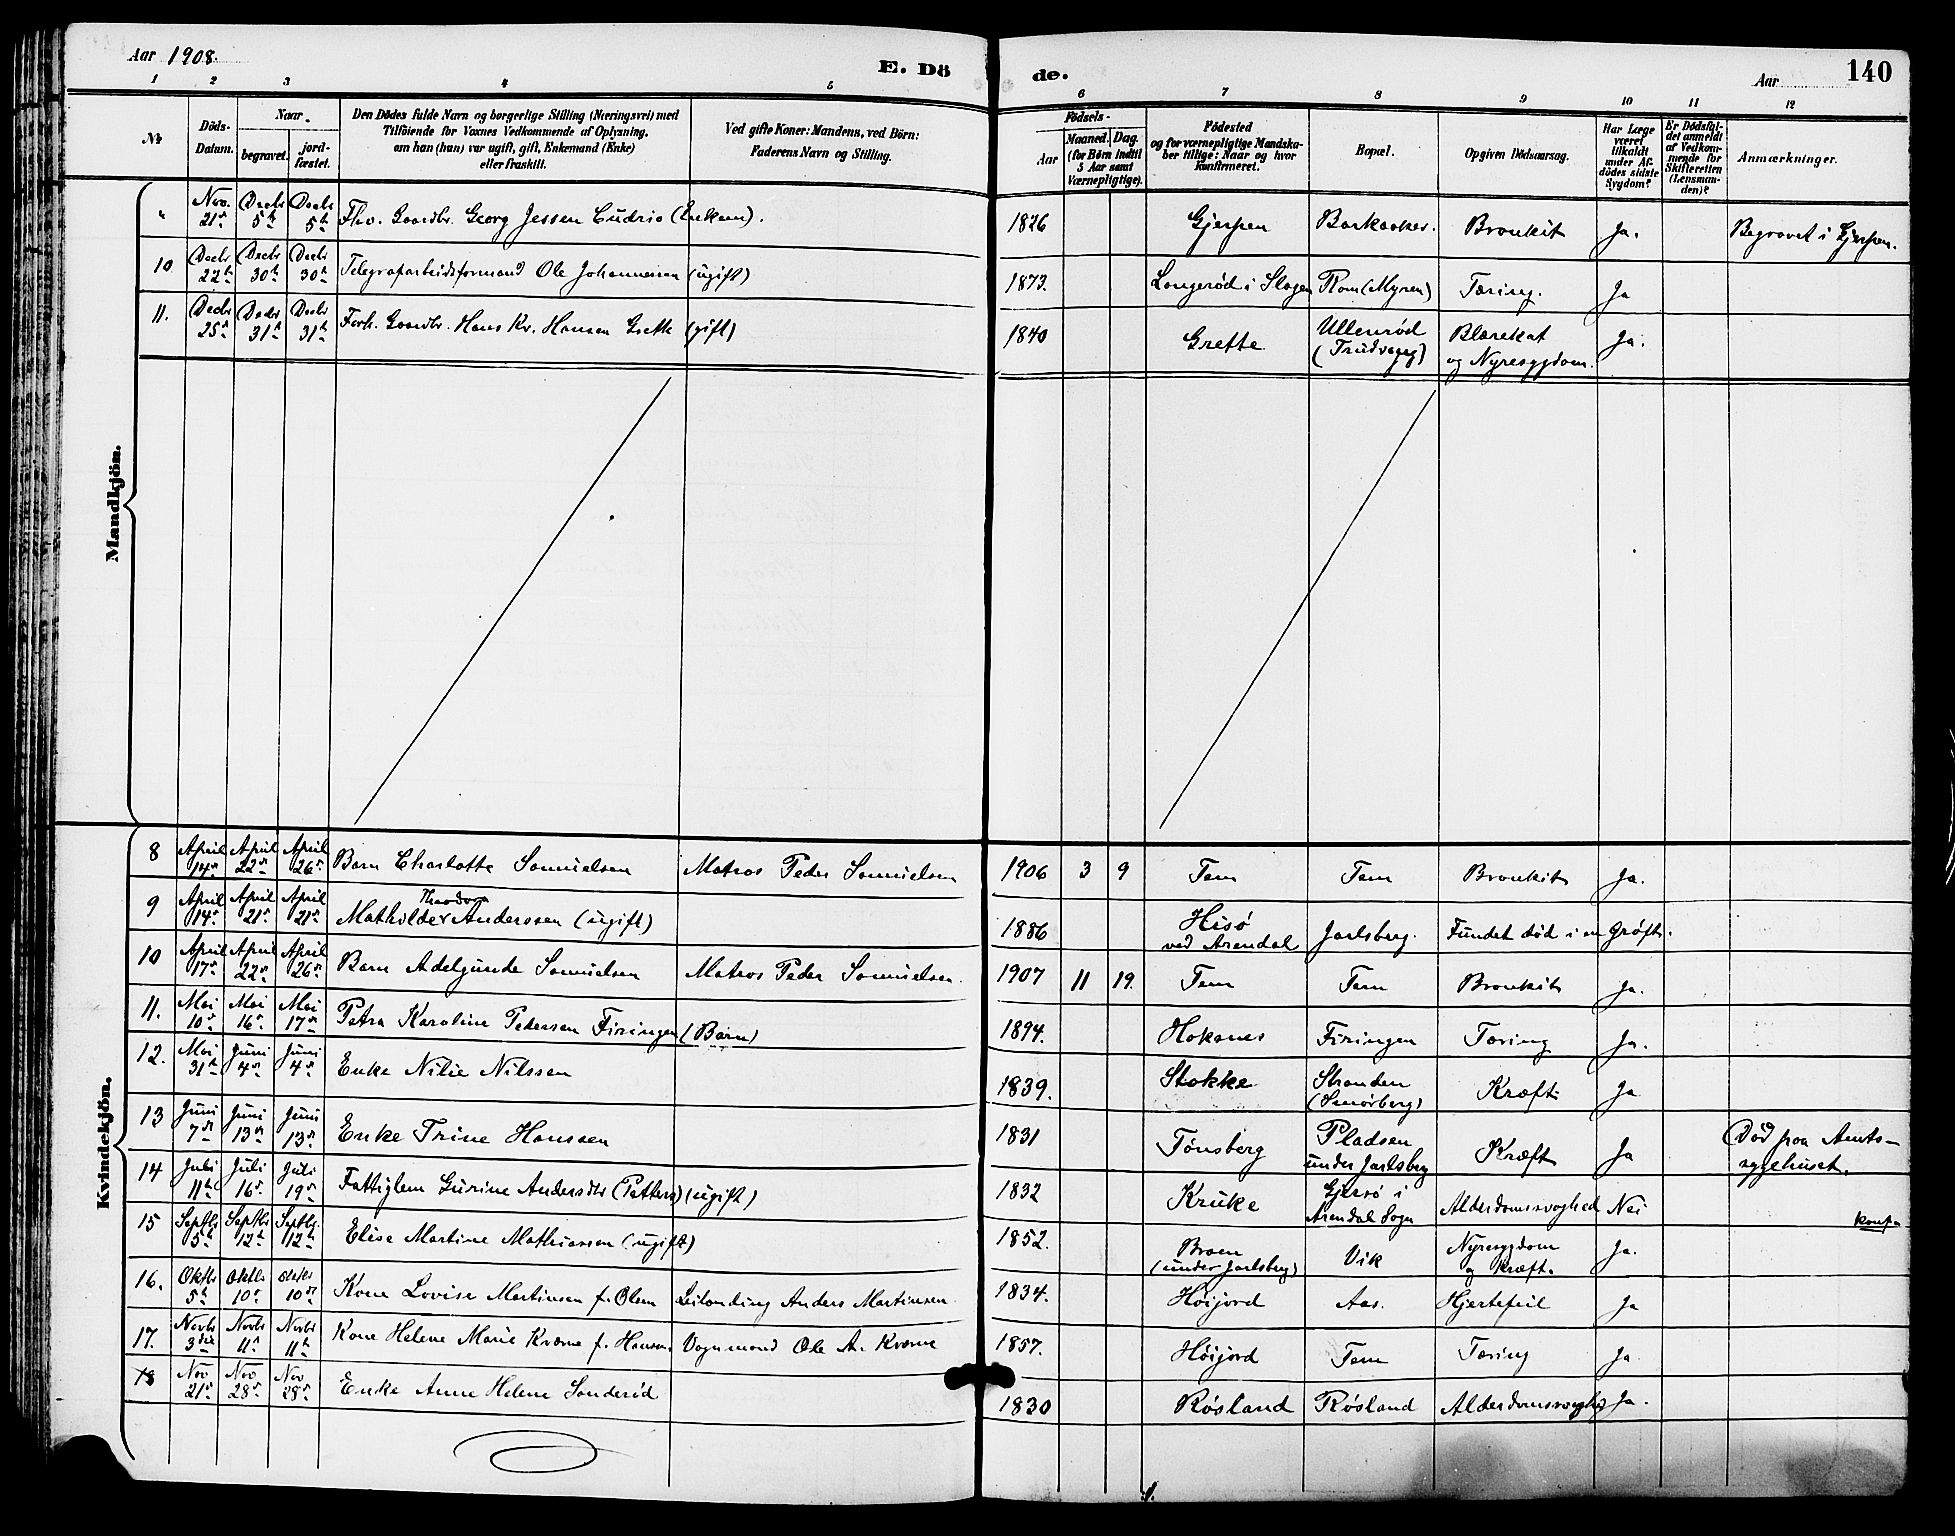 Aar 1908.
E. Dö de.
Aar 140
1 2 3 4 5 6 7 8 9 10 11 12
№ Döds-Datum. Naar begravet. jordfæstet. Den Dödes fulde Navn og borgerlige Stilling (Næringsvei) med Tilföiende for Voxnes Vedkommende af Oplysning, om han (hun) var ugift, gift, Enkemand (Enke) eller fraskilt. Ved gifte Koner: Mandens, ved Börn: Faderens Navn og Stilling. Födsels- Aar Maaned. Dag. (for Börn indtil 5 Aar samt Værnepligtige). Födested og for værnepligtige Mandskaber tillige: Naar og hvor konfirmeret. Bopæl. Opgiven Dödsaarsag. Har Læge været tilkaldt under Afdödes sidste Sygdom? Er Dödsfaldet anmeldt af Vedkommende for Skifteretten (Lensmanden)? Anmærkninger.
Mandkjön.
" Nov. 21de Decbr 5te Decbr 5te Fhv. Gaardbr. Georg Jessen Cudrio (Enkem). 1826 Gjerpen Barkaaker. Bronkit Ja. Begravet i Gjerpen.
10 Decbr 22de Decbr 30te Decbr 30te Telegrafarbeidsformand Ole Johannesen (ugift) 1873. Langerød i Slagen Rom (Myren) Tæring. Ja
11. Decbr 25de Decbr 31te Decbr 31te Forh. Gaardbr. Hans Kr. Hansen Grette (gift) 1840 Grette Ullenrød (Trudvang) Blærekat og Nyresygdom. Ja.
Kvindekjön.
8 April 14de April 22de April 26de Barn Charlotte Samuelsen Matros Peder Samuelsen 1906 3 9 Tem Tem Bronkit Ja.
9 April 14de April 21de April 21de Mathilde Theodora Anderssen (ugift) 1886 Hisø ved Arendal Jarlsberg. Fundet død i en Grøft.
10 April 17de April 22de April 26de Barn Adelgunde Samuelsen Matros Peder Samuelsen. 1907 11 19. Tem Tem Bronkit Ja.
11. Mai 10de Mai 16de Mai 17de Petra Karoline Pedersen Firingen (Barn) 1894. Hoksnes Firingen Tæring Ja.
12. Mai 31te Juni 4de Juni 4de Enke Nilie Nilssen 1839. Stokke Stranden (Smørberg) Kræft Ja
13 Juni 7de Juni 13de Juni 13de Enke Trine Hanssen 1831 Tønsberg Pladsen under Jarlsberg Kræft Ja Død paa Amtssygehuset.
14 Juli 11te Juli 16de Juli 19de Fattiglem Gurine Andersdtr (ugift) 1832 Kruke i Arendal Sogn Alderdomssvaghed Nei
15 Septbr 5te Septbr 12te Septbr 12te Elise Martine Mathiassen (ugift) 1852. Braen (under Jarlsberg) Vik Nyresygdom og Kræft. Ja.
16. Oktbr 5te Oktbr 10de Oktbr 10de Kone Lovise Martinsen f. Olsen Leilending Anders Martinsen. 1834. Høijord Aas. Hjertefeil Ja
17. Novbr 3die Novbr 11te Novbr 11te Kone Helene Marie Kværne f. Hansen. Vognmand Ole A. Kværne 1857. Høijord Tem Tæring Ja
18 Nov 21de Nov 28de Nov 28de Enke Anne Helene Sanderød 1830 Røsland Røsland Alderdomssvaghed Ja.